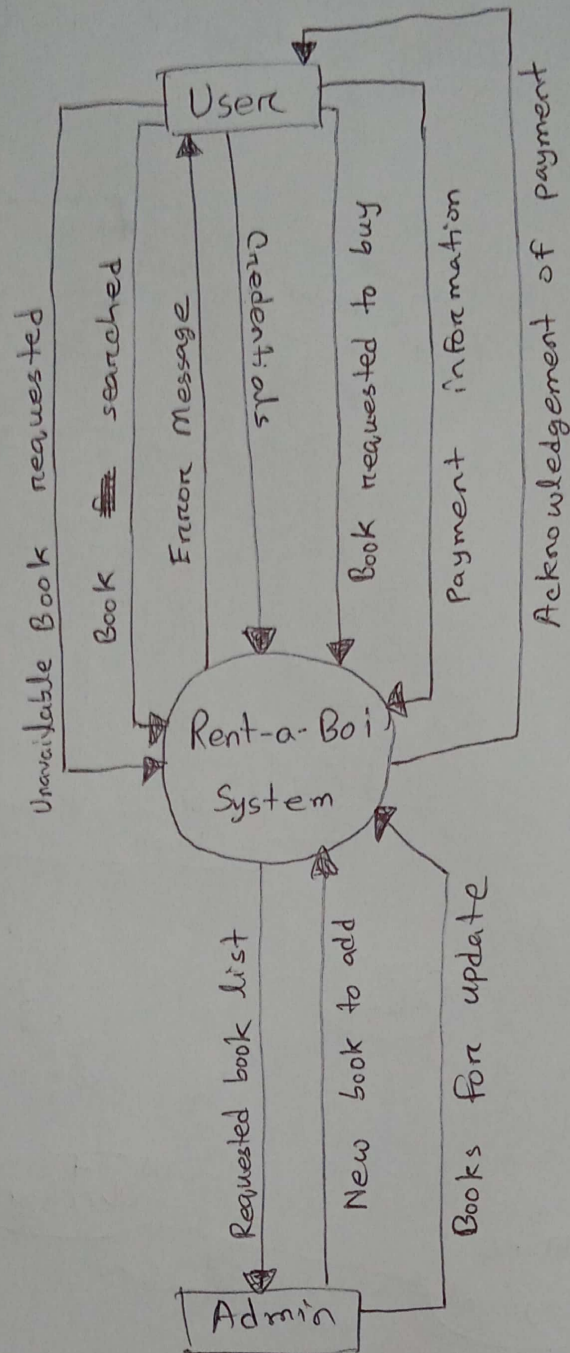 Unavailable Book requested
Book searched
Error Message
Credentials
Book requested to buy
Payment information
Acknowledgement of payment
User
Rent-a-Boi
System
Requested book list
New book to add
Books for update
Admin